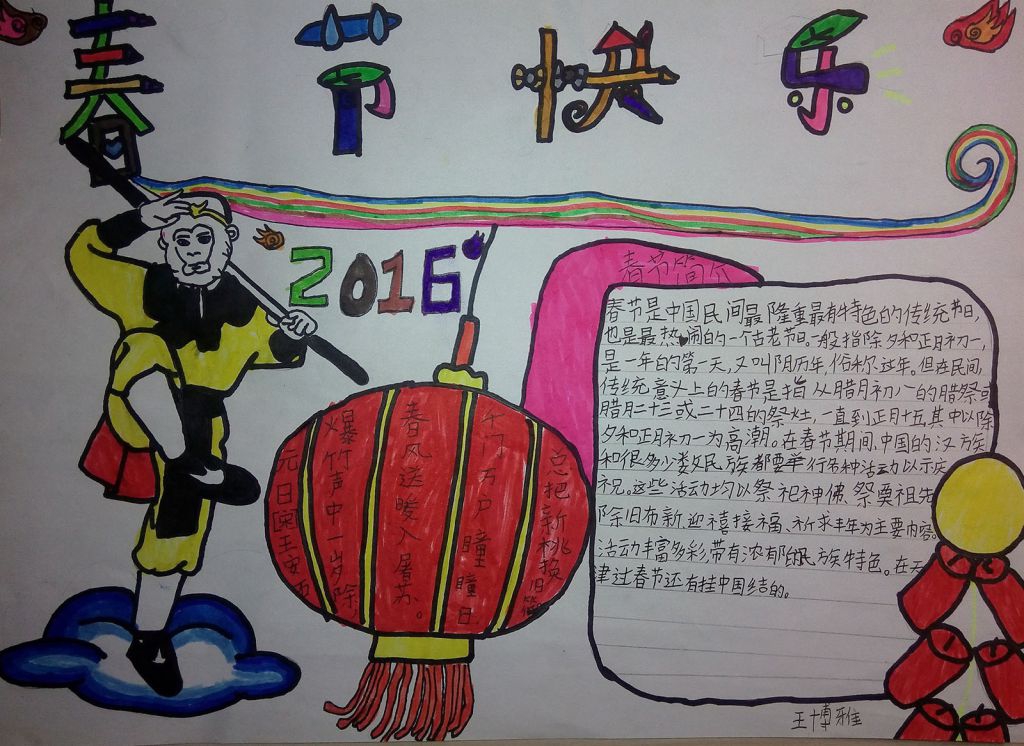 春节快乐
2016
春节简介
春节是中国民间最隆重最有特色的传统节日,
也是最热闹的一个古老节日。一般指除夕和正月初一,
是一年的第一天,又叫阴历年,俗称过年。但在民间,
传统意义上的春节是指从腊月初八的腊祭或
腊月二十三或二十四的祭灶,一直到正月十五,其中以除
夕和正月初一为高潮。在春节期间,中国的汉族
和很多少数民族都要举行各种活动以示庆
祝。这些活动均以祭祀神佛、祭奠祖先
除旧布新、迎禧接福、祈求丰年为主要内容。
活动丰富多彩,带有浓郁的民族特色。在天
津过春节还有挂中国结的。
元日 王安石
爆竹声中一岁除
春风送暖入屠苏。
千门万户瞳瞳日
总把新桃换旧符
王博雅